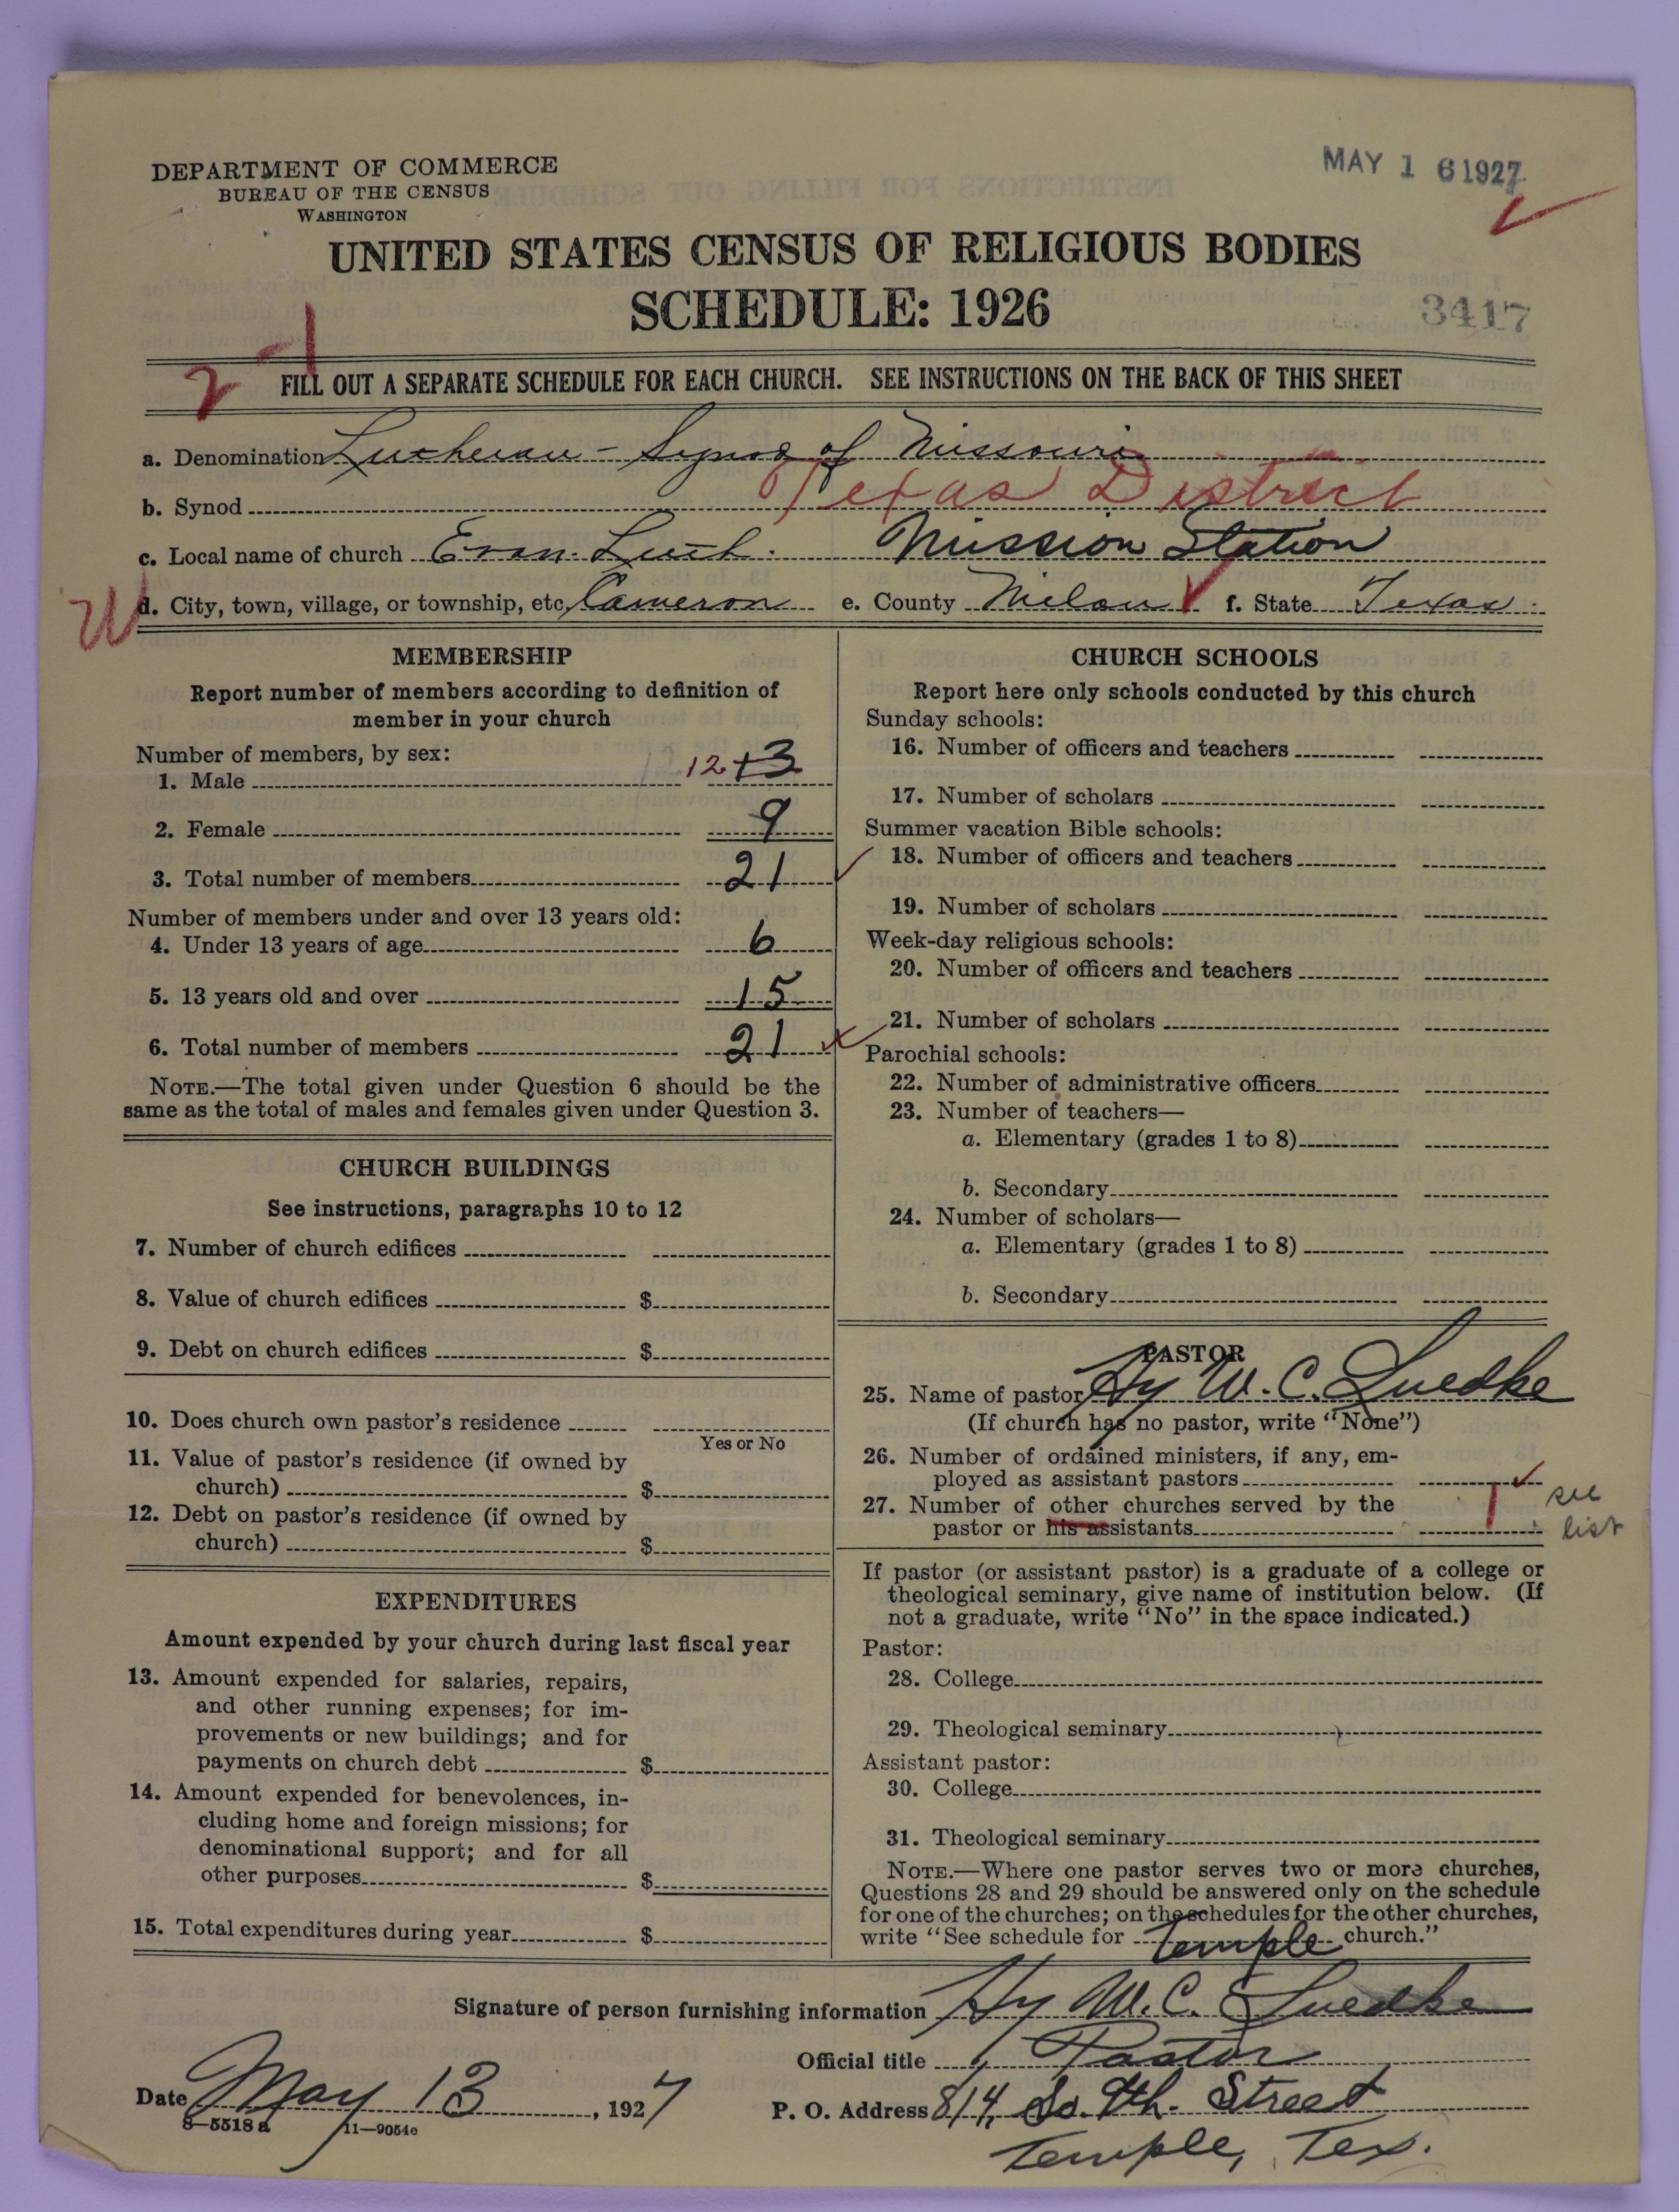 DEPARTMENT OF COMMERCE
BUREAU OF THE CENSUS
WASHINGTON
MAY 1 6 1927
UNITED STATES CENSUS OF RELIGIOUS BODIES
SCHEDULE: 1926
3417
2
FILL OUT A SEPARATE SCHEDULE FOR EACH CHURCH. SEE INSTRUCTIONS ON THE BACK OF THIS SHEET
a. Denomination Lutheran - Synod of Missouri
b. Synod Texas District
c. Local name of church Evan. Luth. Mission Station
d. City, town, village, or township, etc. Cameron e. County Milam f. State Texas
MEMBERSHIP
Report number of members according to definition of
member in your church
Number of members, by sex:
1. Male 12 13
2. Female 9
3. Total number of members 21
Number of members under and over 13 years old:
4. Under 13 years of age 6
5. 13 years old and over 15
6. Total number of members 21
NOTE.—The total given under Question 6 should be the
same as the total of males and females given under Question 3.
CHURCH BUILDINGS
See instructions, paragraphs 10 to 12
7. Number of church edifices
8. Value of church edifices $
9. Debt on church edifices $
10. Does church own pastor's residence
Yes or No
11. Value of pastor's residence (if owned by
church) $
12. Debt on pastor's residence (if owned by
church) $
EXPENDITURES
Amount expended by your church during last fiscal year
13. Amount expended for salaries, repairs,
and other running expenses; for im-
provements or new buildings; and for
payments on church debt $
14. Amount expended for benevolences, in-
cluding home and foreign missions; for
denominational support; and for all
other purposes $
15. Total expenditures during year $
CHURCH SCHOOLS
Report here only schools conducted by this church
Sunday schools:
16. Number of officers and teachers
17. Number of scholars
Summer vacation Bible schools:
18. Number of officers and teachers
19. Number of scholars
Week-day religious schools:
20. Number of officers and teachers
21. Number of scholars
Parochial schools:
22. Number of administrative officers
23. Number of teachers—
a. Elementary (grades 1 to 8)
b. Secondary
24. Number of scholars—
a. Elementary (grades 1 to 8)
b. Secondary
PASTOR
25. Name of pastor Hy W. C. Luedke
(If church has no pastor, write "None")
26. Number of ordained ministers, if any, em-
ployed as assistant pastors
27. Number of other churches served by the
pastor or his assistants 1 see list
If pastor (or assistant pastor) is a graduate of a college or
theological seminary, give name of institution below. (If
not a graduate, write "No" in the space indicated.)
Pastor:
28. College
29. Theological seminary
Assistant pastor:
30. College
31. Theological seminary
NOTE.—Where one pastor serves two or more churches,
Questions 28 and 29 should be answered only on the schedule
for one of the churches; on the schedules for the other churches,
write "See schedule for Temple church."
Signature of person furnishing information Hy W. C. Luedke
Official title Pastor
Date May 13, 1927
P. O. Address 814, So. 9th. Street
Temple, Tex.
8—5518 a 11—9054c